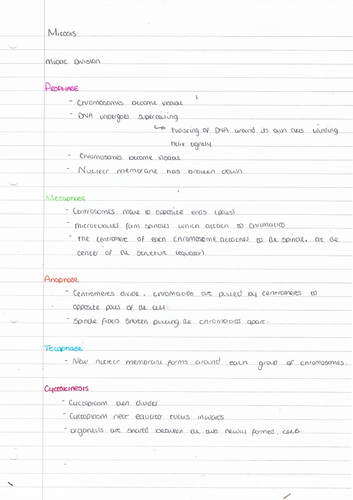 Mitosis
Mitotic Division
Prophase
- Chromosomes become visible
- DNA undergoes supercoiling
↳ twisting of DNA around its own axis winding
helix tightly
- Chromosomes become visible
- Nuclear membrane has broken down
Metaphase
- Centrosomes move to opposite ends (poles)
- Microtubules form spindles which attach to chromatids
- The centromere of each chromosome attaches to the spindle, at the
center of the structure (equator)
Anaphase
- Centromeres divide, chromatids are pulled by centromeres to
opposite poles of the cell.
- Spindle fibers shorten pulling the chromatids apart.
Telophase
- New nuclear membrane forms around each group of chromosomes.
Cytokinesis
- Cytoplasm divides
- Cytoplasm near equator inwards
- organells are shared between the two newly formed cells